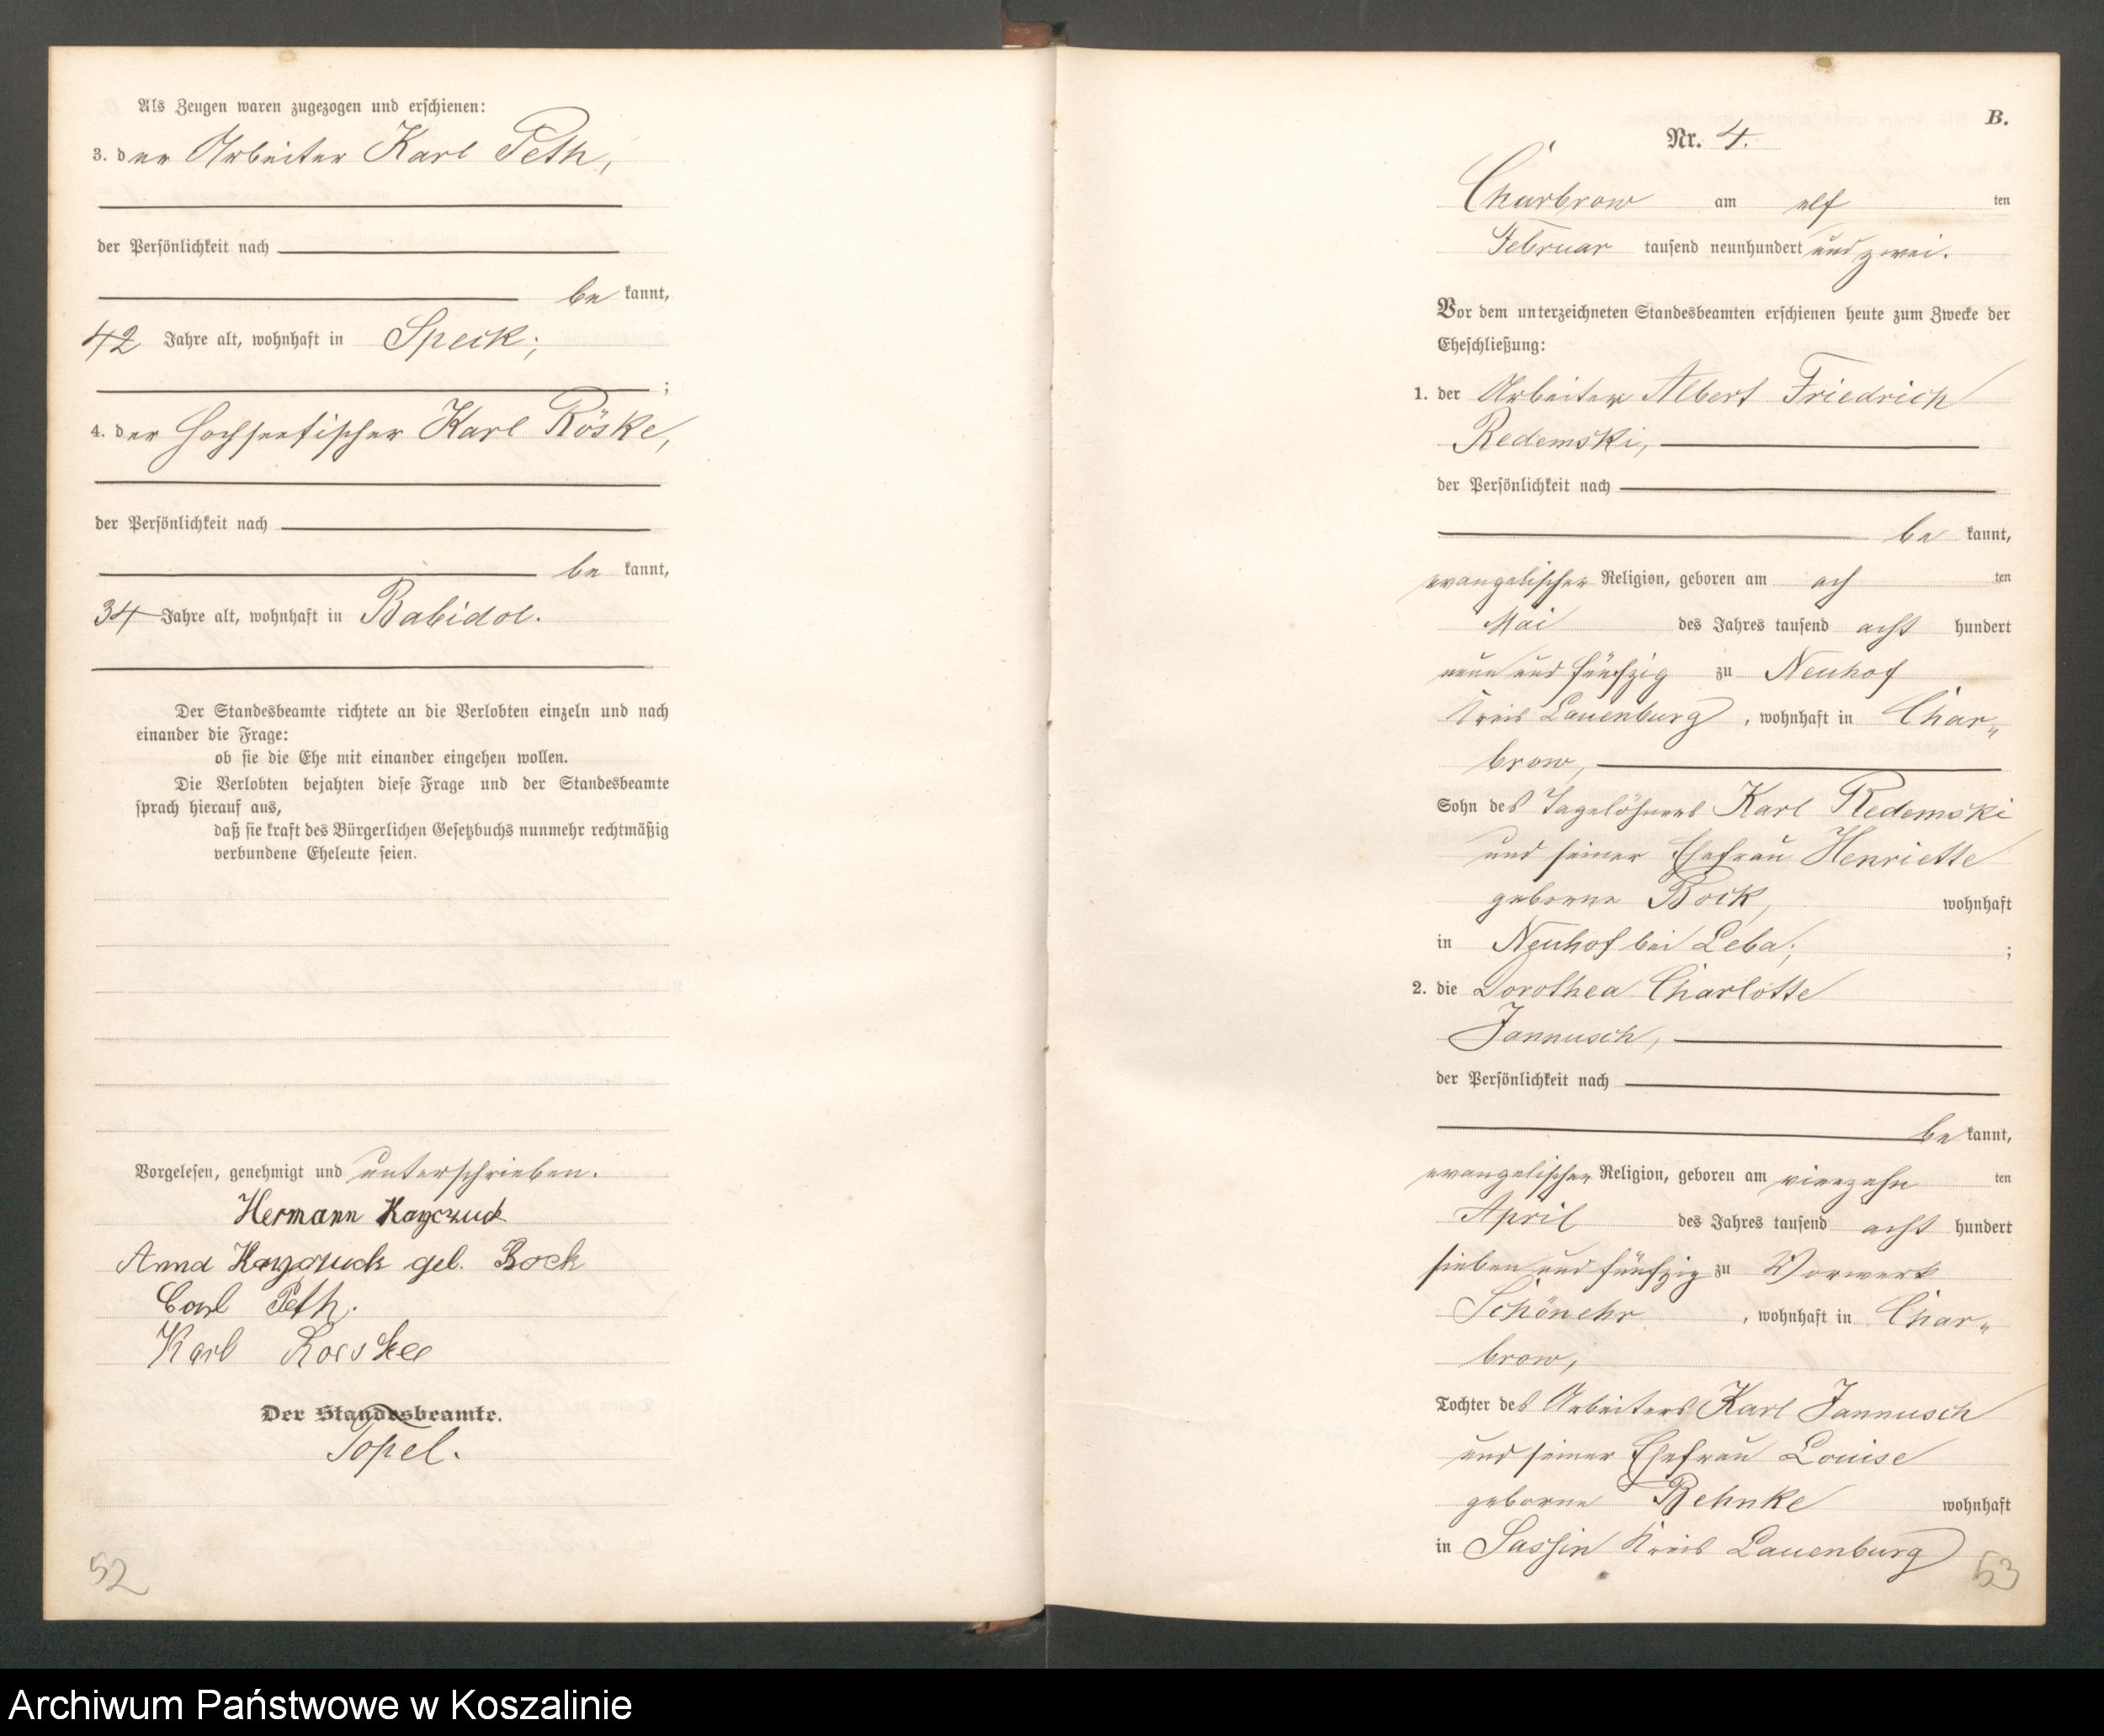 Als Zeugen waren zugezogen und erschienen:
3. der Arbeiter Karl Peth,
der Persönlichkeit nach
be kannt,
42 Jahre alt, wohnhaft in Speck;
;
4. der Hochseefischer Karl Röske,
der Persönlichkeit nach
be kannt,
34 Jahre alt, wohnhaft in Babidol.
Der Standesbeamte richtete an die Verlobten einzeln und nach
einander die Frage:
ob sie die Ehe mit einander eingehen wollen.
Die Verlobten bejahten diese Frage und der Standesbeamte
sprach hierauf aus,
daß sie kraft des Bürgerlichen Gesetzbuchs nunmehr rechtmäßig
verbundene Eheleute seien.
Vorgelesen, genehmigt und unterschrieben.
Hermann Kayczuck
Anna Kayczuck geb. Bock
Carl Peth.
Karl Roeske
Der Standesbeamte.
Topel.
52
B.
Nr. 4.
Charbrow am elf ten
Februar tausend neunhundert und zwei.
Vor dem unterzeichneten Standesbeamten erschienen heute zum Zwecke der
Eheschließung:
1. der Arbeiter Albert Friedrich
Redemski,
der Persönlichkeit nach
be kannt,
evangelischer Religion, geboren am ach ten
Mai des Jahres tausend acht hundert
neun und fünfzig zu Neuhof
Kreis Lauenburg, wohnhaft in Char„
brow,
Sohn des Tagelöhners Karl Redemski
und seiner Ehefrau Henriette
geborne Bock, wohnhaft
in Neuhof bei Leba; ;
2. die Dorothea Charlotte
Jannusch,
der Persönlichkeit nach
be kannt,
evangelischer Religion, geboren am vierzehn ten
April des Jahres tausend acht hundert
sieben und fünfzig zu Vorwerk
Schönehr, wohnhaft in Char„
brow,
Tochter des Arbeiters Karl Jannusch
und seiner Ehefrau Louise
geborne Behnke wohnhaft
in Sassin Kreis Lauenburg
53
Archiwum Państwowe w Koszalinie